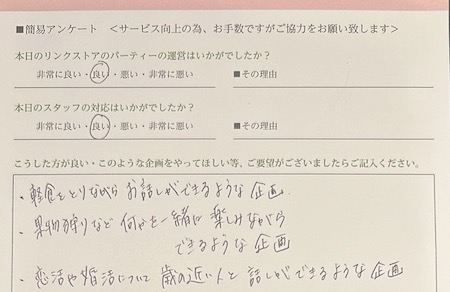 ■簡易アンケート <サービス向上の為、お手数ですがご協力をお願い致します>
本日のリンクストアのパーティーの運営はいかがでしたか?
非常に良い・良い・悪い・非常に悪い ■その理由
本日のスタッフの対応はいかがでしたか?
非常に良い・良い・悪い・非常に悪い ■その理由
こうした方が良い・このような企画をやってほしい等、ご要望がございましたらご記入ください。
・軽食をとりながらお話しができるような企画.
・果物狩りなど何かを一緒に楽しみながら
できるような企画
・恋活や婚活について歳の近い人と話しができるような企画